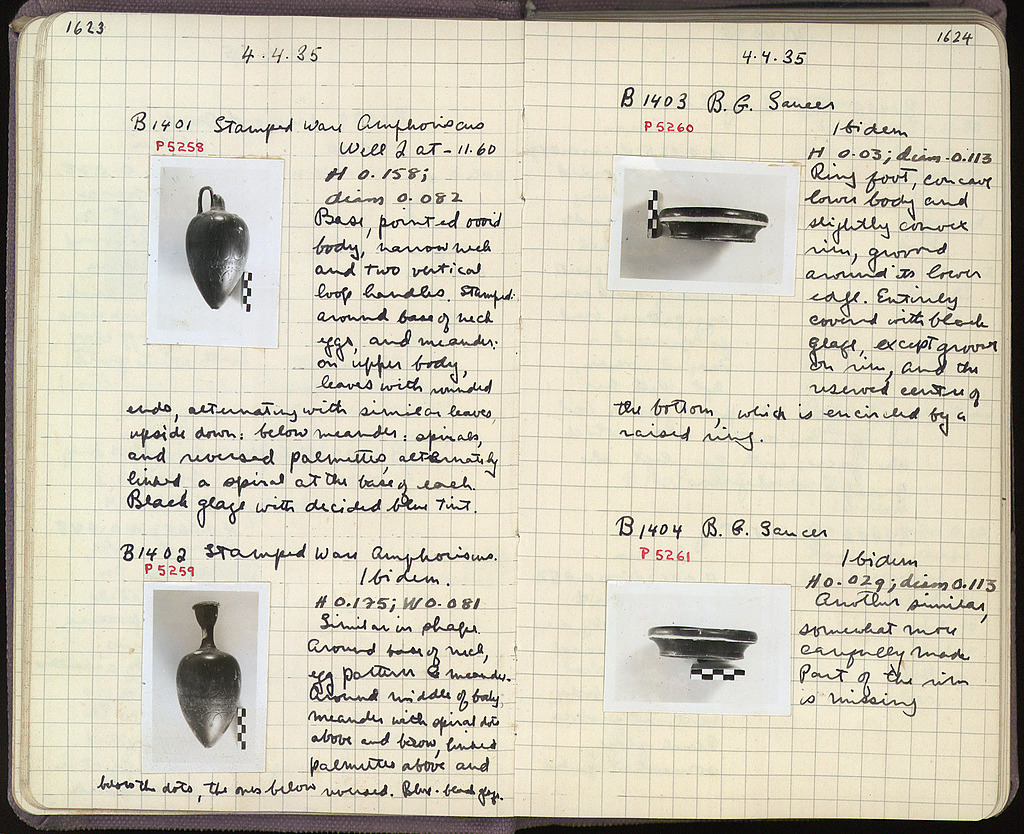 1623
4.4.35
B1401 Stamped Ware Amphoriscus
P5258
Well 2 at -11.60
H 0.158;
diam 0.082
Base, pointed ovoid
body, narrow neck
and two vertical
loop handles. Stamped:
around base of neck
eggs, and meander:
on upper body,
leaves with rounded
ends, alternating with similar leaves,
upside down: below meander: spirals,
and reversed palmettes, alternately
linked a spiral at the base of each.
Black glaze with decided blue tint.
B1402 Stamped Ware Amphoriscus.
P5259
Ibidem.
H 0.175; W 0.081
Similar in shape.
Around base of neck,
egg pattern & meander.
Around middle of body,
meander with spiral dots
above and below, linked
palmettes above and
below the dots, the ones below reversed. Blue-black glaze.
1624
4.4.35
B1403 B.G. Saucer
P5260
Ibidem
H 0.03; diam 0.113
Ring foot, concave
lower body and
slightly convex
rim, grooved
around its lower
edge. Entirely
covered with black
glaze, except groove
on rim, and the
reserved centre of
the bottom, which is encircled by a
raised ring.
B1404 B.G. Saucer
P5261
Ibidem
H 0.029; diam 0.113
Another similar,
somewhat more
carefully made
Part of the rim
is missing